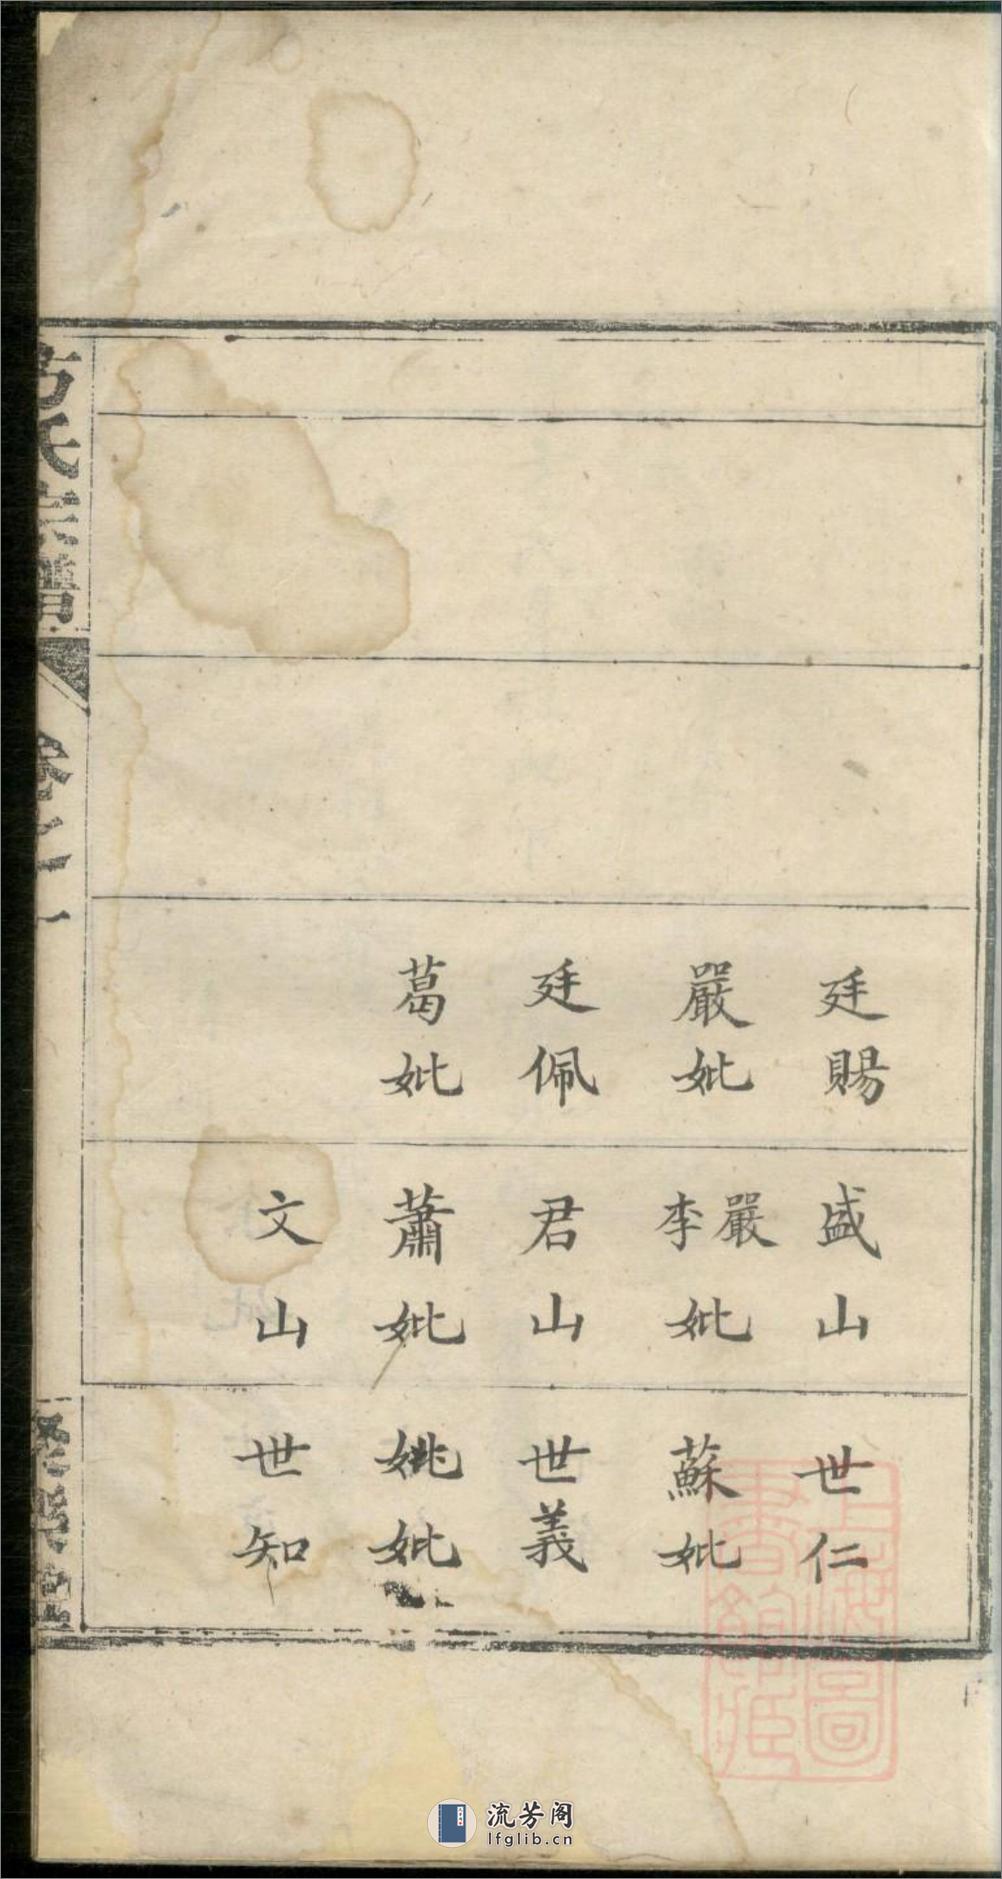 廷賜
嚴妣
廷佩
葛妣
盛山
嚴李妣
君山
蕭妣
文山
世仁
蘇妣
世義
姚妣
世知
氏宗譜
卷之一
上海圖
書館藏
流芳阁
lfglib.cn